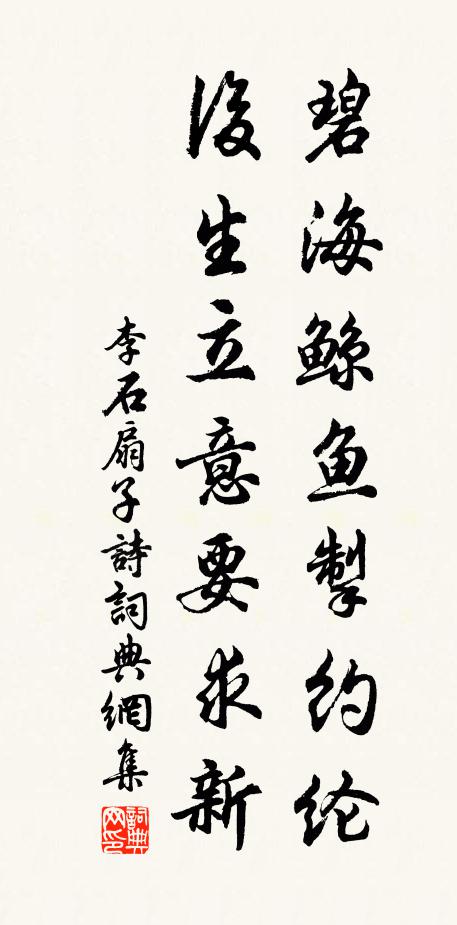 碧海鲸鱼掣约纶
後生立意要求新
李石扇子詩詞典網集
詞典网印